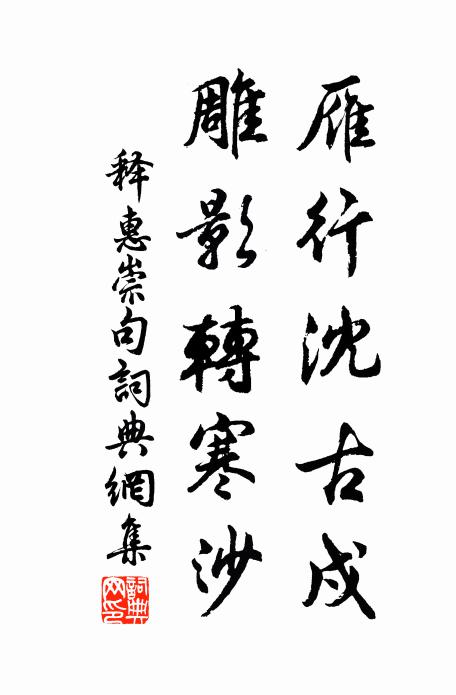 雁行沈古戍
雕影轉寒沙
释惠崇句詞典網集
詞典网印